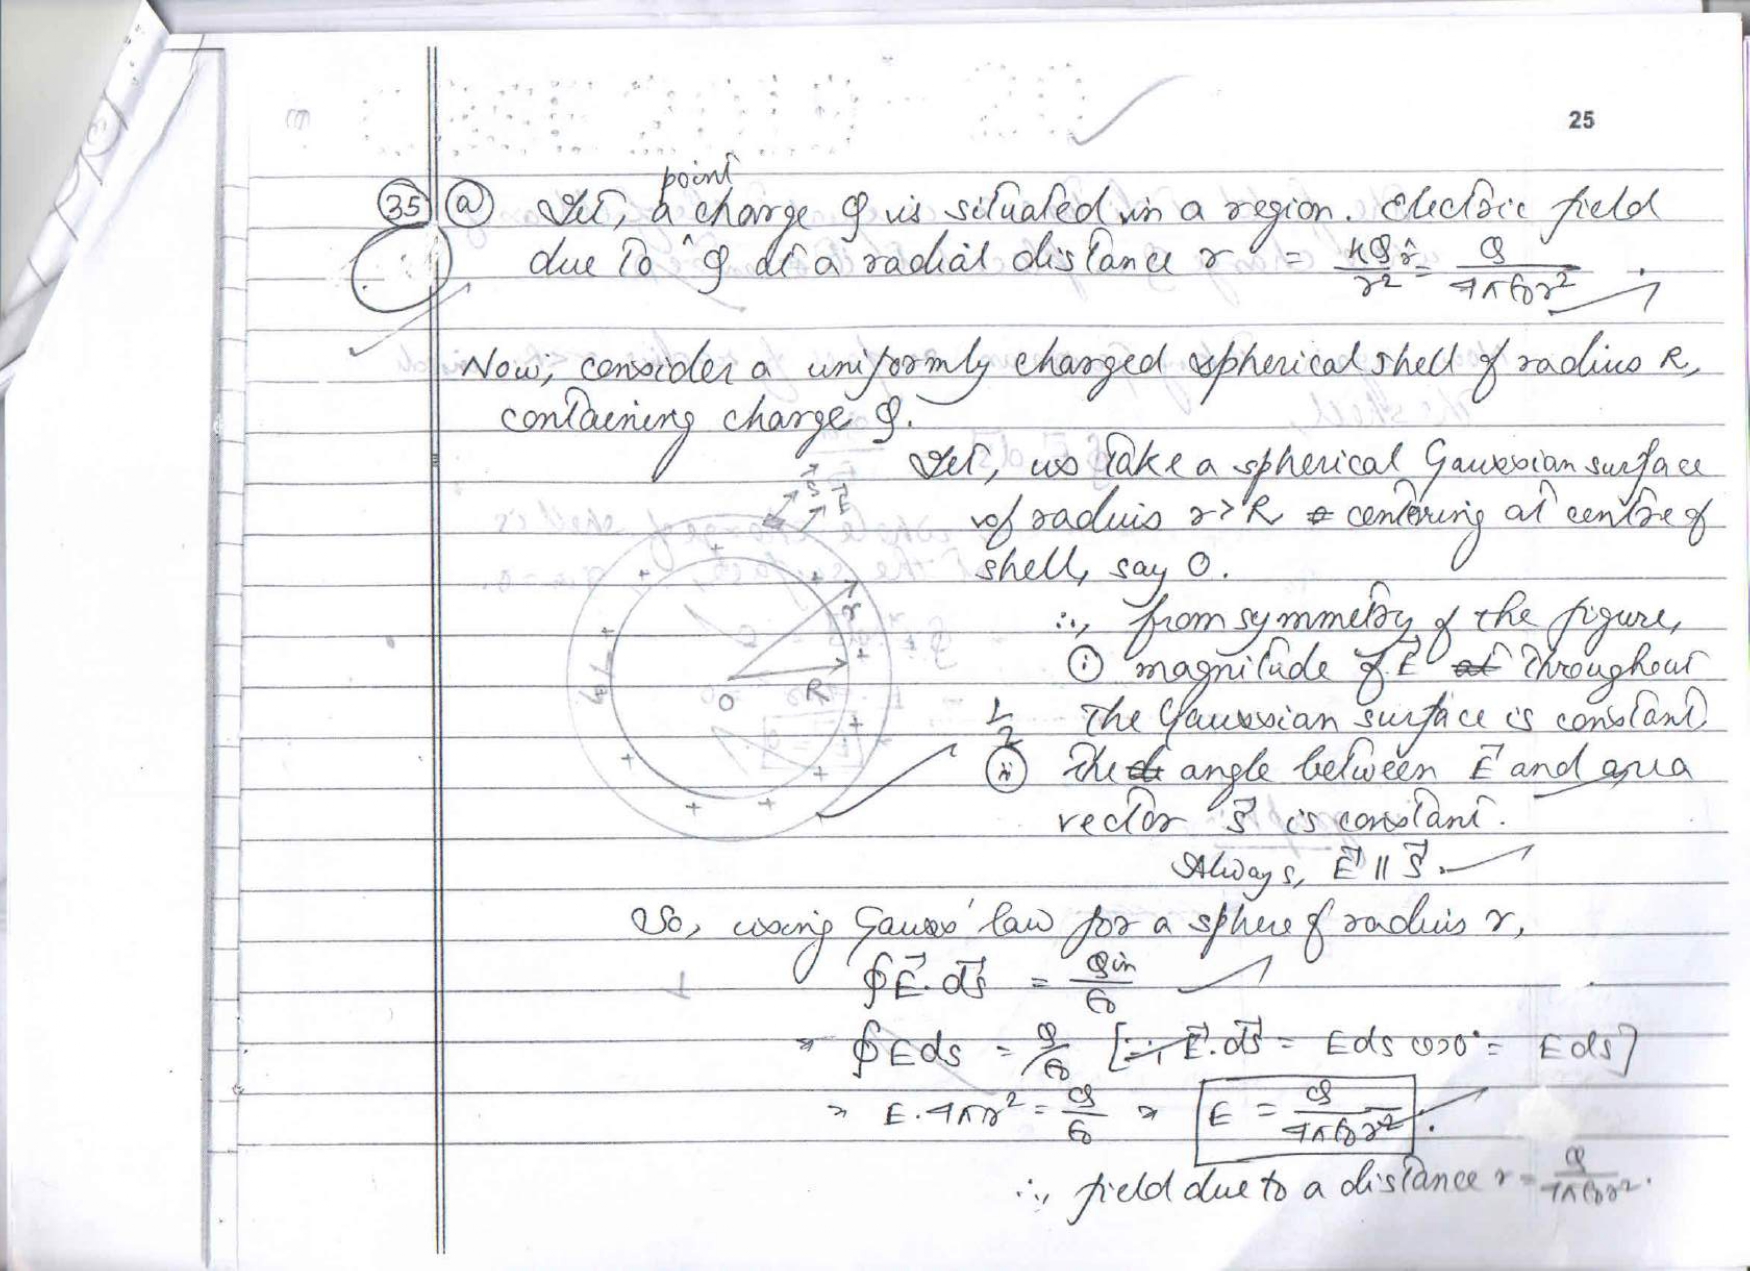 25
point
35 (a) Let, a charge Q is situated in a region. Electric field
due to ^ Q at a radial distance r = kQr̂/r² = Q/4π€₀r² .
Now, consider a uniformly charged spherical shell of radius R,
containing charge Q.
Let, us take a spherical Gaussian surface
of radius r > R centering at centre of
shell, say O.
∴, from symmetry of the figure,
(i) magnitude of E⃗ throughout
1/2 the Gaussian surface is constant.
(ii) The angle between E⃗ and area
vector S⃗ is constant.
Always, E⃗ || S⃗.
S⃗ E⃗
+ + + + + + + + +
r
O R
So, using Gauss' law for a sphere of radius r,
∮E⃗.dS⃗ = Qin/€₀
⇒ ∮Eds = Q/€₀ [∵, E⃗.dS⃗ = Eds cos0° = Eds]
⇒ E.4πr² = Q/€₀ ⇒ E = Q/4π€₀r² .
∴, field due to a distance r = Q/4π€₀r².